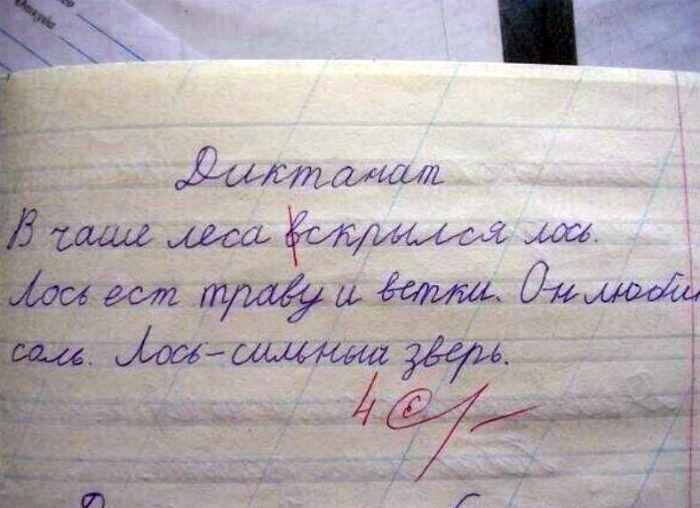 Диктанат
В чаше леса вскрылся лось.
Лось ест траву и ветки. Он люби
соль. Лось-сильный зверь.
4